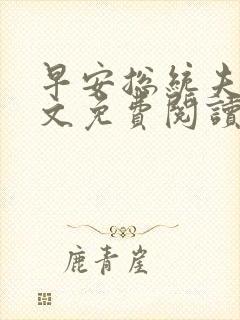 早安总统夫
文免費閱讀
鹿青崖